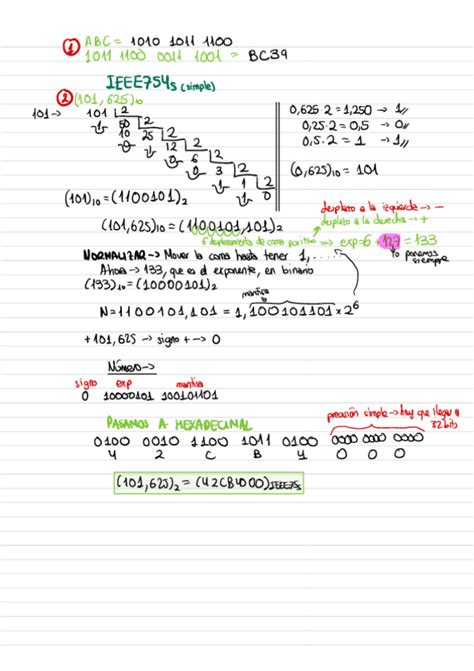 ① ABC = 1010 1011 1100
1011 1100 0011 1001 = BC39
IEEE754s (simple)
② (101,625)₁₀
101 → 101 |2
50 |2
10 25 |2
12 |2
6 |2
3 |2
1 |2
0
0,625·2 = 1,250 → 1//
0,25·2 = 0,5 → 0//
0,5·2 = 1 → 1//
(0,625)₁₀ = 101
(101)₁₀ = (1100101)₂
desplazo a la izquierda → -
desplazo a la derecha → +
(101,625)₁₀ = (1100101,101)₂
6 desplazamiento de coma positivo → exp = 6 + 127 = 133
Yo ponemos siempre
NORMALIZAR → Mover la coma hasta tener 1,.....
Ahora → 133, que es el exponente, en binario
(133)₁₀ = (10000101)₂
mantisa
N = 1100101,101 = 1,100101101 × 2⁶
+101,625 → signo + → 0
Número →
signo exp mantisa
0 10000101 100101101
precisión simple → hay que llegar a 32 bits
PASAMOS A HEXADECIMAL
0100 0010 1100 1011 0100 0000 0000 0000
4 2 C B 4 0 0 0
(101,625)₂ = (42CB4000)IEEE75s